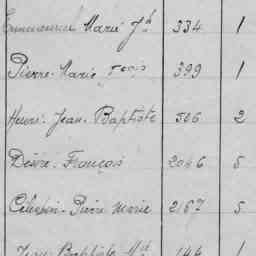 Emmanuel Marie Jh 334 1
Pierre-Marie 399 1
Henri-Jean-Baptiste 506 2
Désiré-François 2046 5
Célestin-Pierre Marie 2167 5
Jean Baptiste 144 1